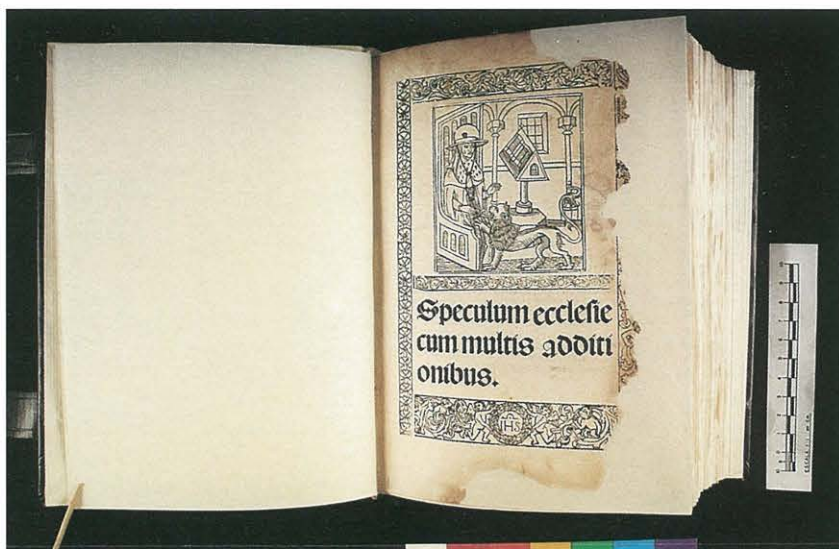 Speculum ecclesie
cum multis additi
onibus.
IHS